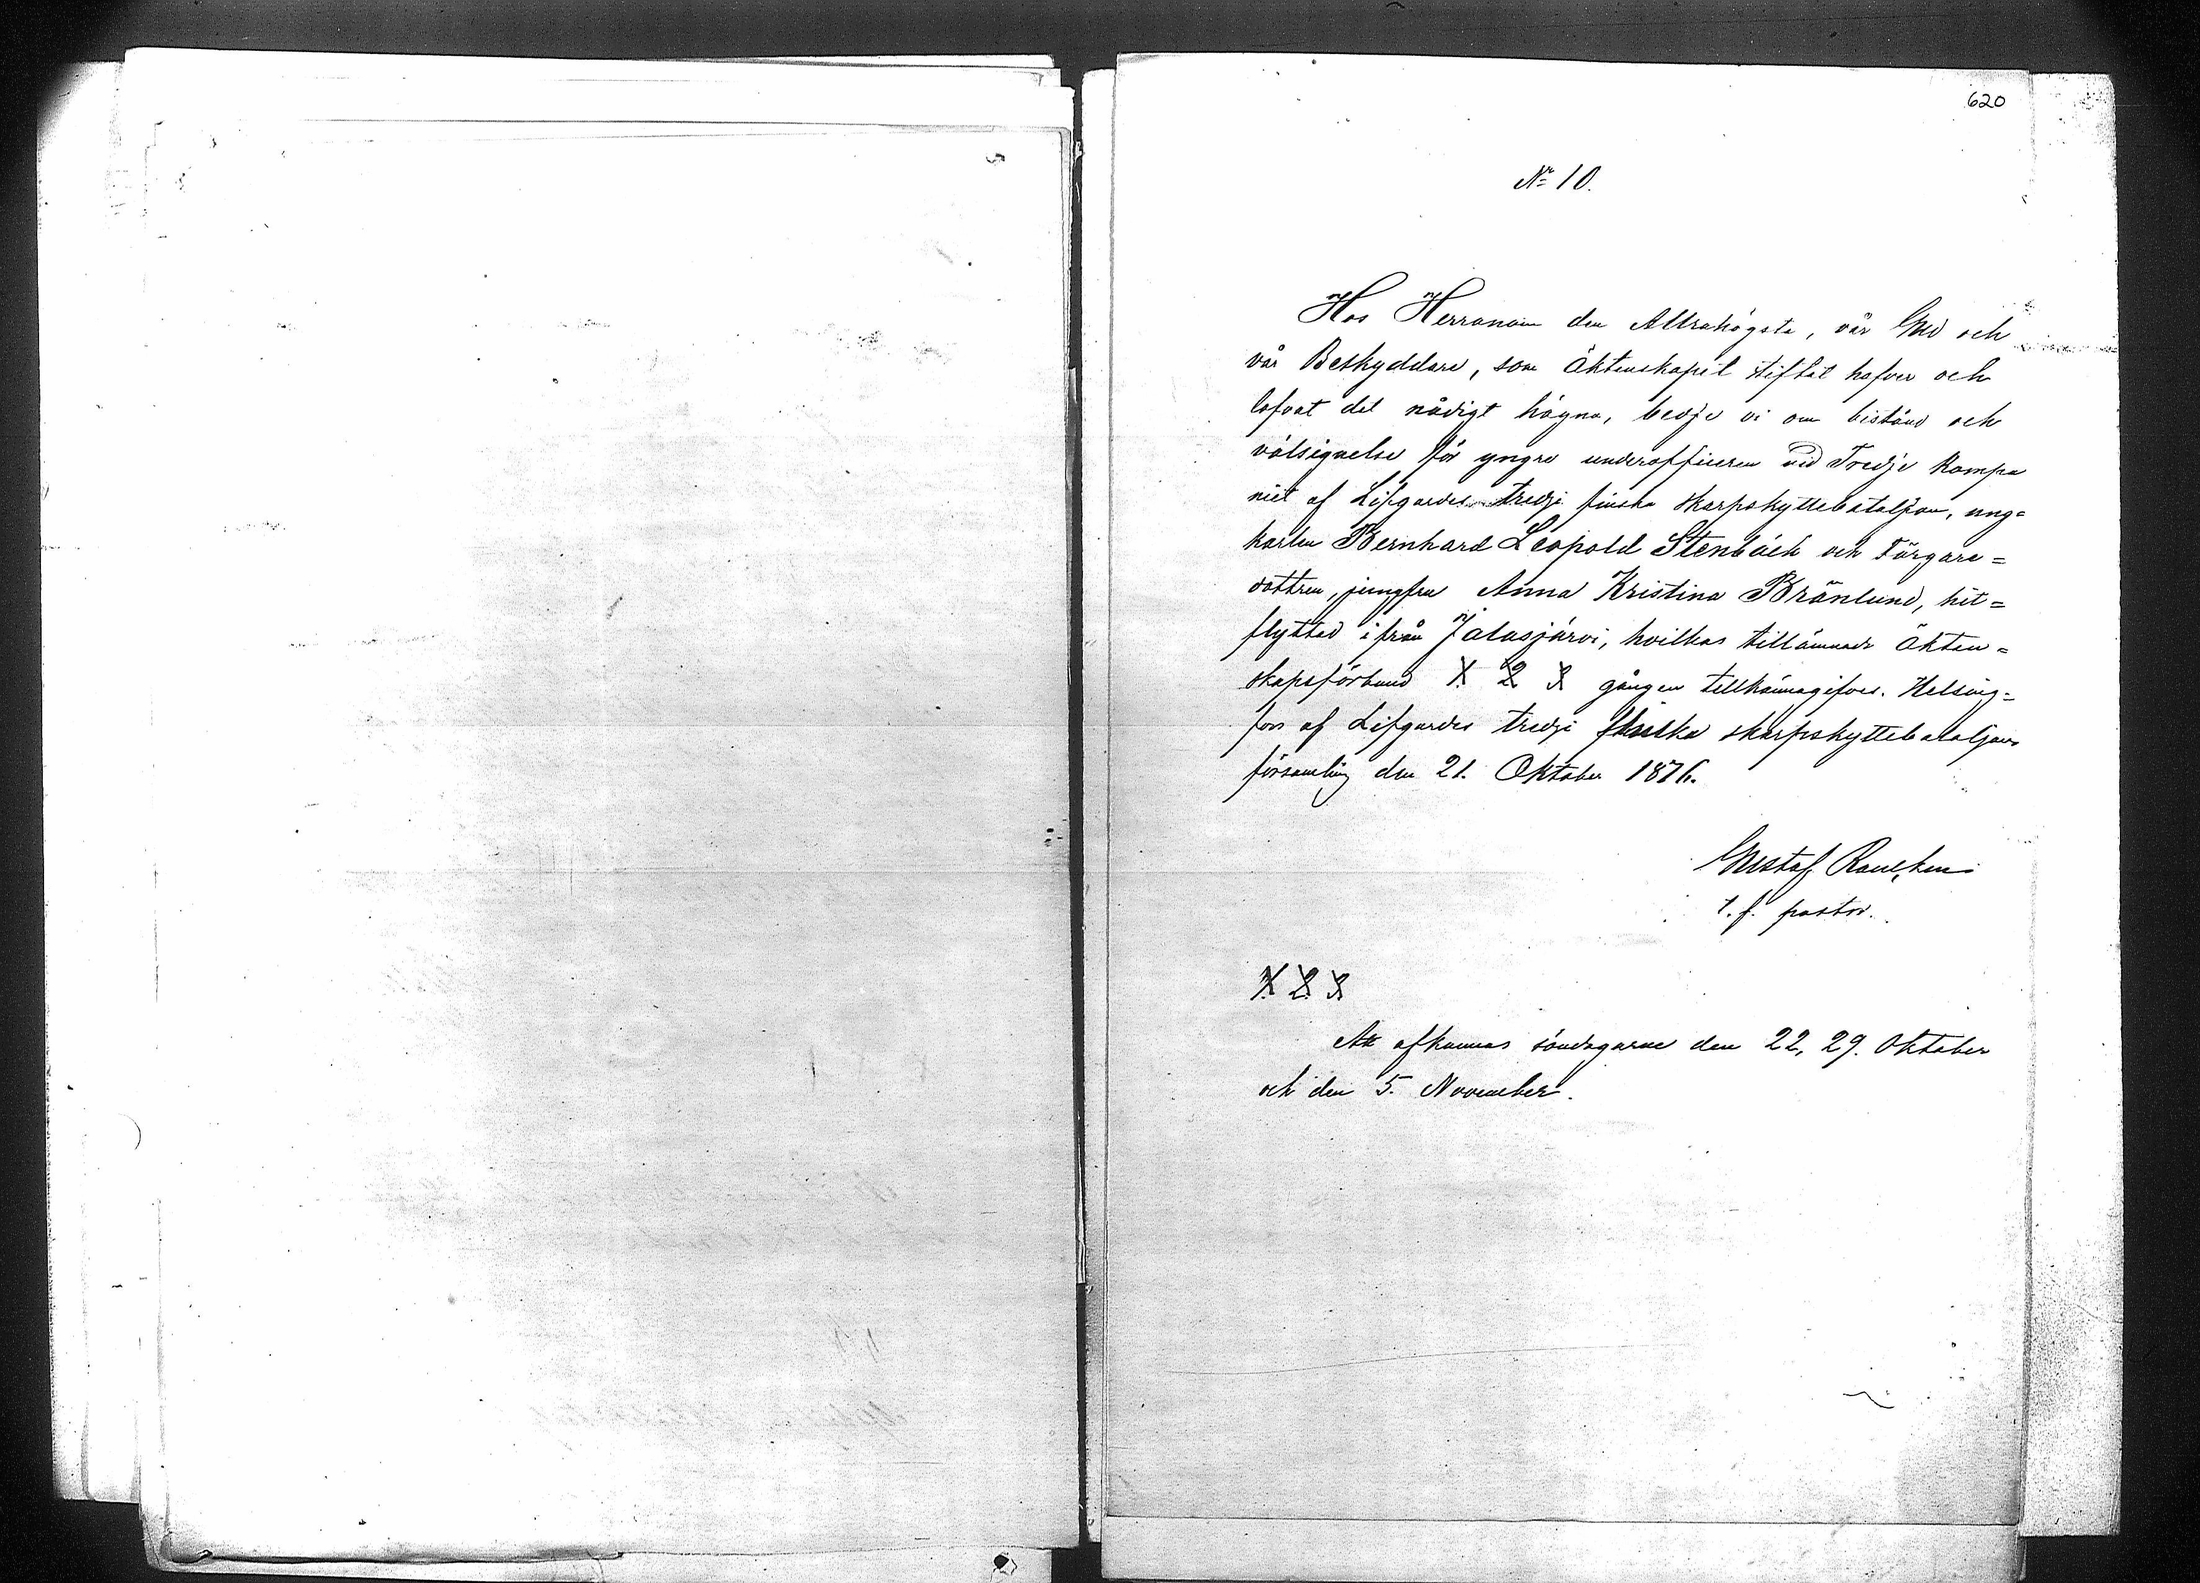 620
No 10.
Hos Herranom den Allrahögste, vår Gud och
vår Beskyddare, som Äktenskapet stiftat hafver och
lofvat det nådigt hägna, bedje vi om bistånd och
välsignelse för yngre underofficeren vid Tredje Kompa
niet af Lifgardes tredje finska skarpskyttebataljon, ung=
karlen Bernhard Leopold Stenbäck och Färgare=
dottren, jungfru Anna Kristina Brånlund, hit=
flyttad ifrån Jalasjärvi, hvilkas tillämnade äkten=
skapsförbund 1. 2 3 gången tillkännagifves. Helsing=
fors af Lifgardes tredje finska skarpskyttebataljons
församling den 21. Oktober 1876.
Gustaf
t. f. pastor.
1. 2. 3.
Att afkunnas söndagarne den 22, 29. Oktober
och den 5. November.